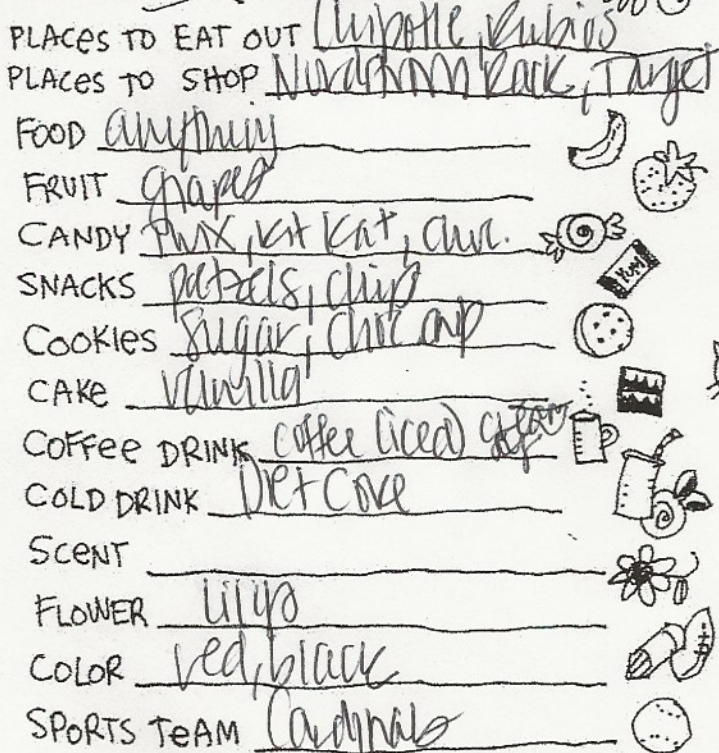 PLACES TO EAT OUT Chipotle, Rubios
PLACES TO SHOP Nordstrom Rack, Target
FOOD anything
FRUIT grapes
CANDY Twix, Kit Kat, choc.
SNACKS pretzels, chips
YUM!
COOKIES sugar, choc chip
CAKE vanilla
COFFEE DRINK coffee (iced)
COLD DRINK Diet Coke
SCENT
FLOWER lilys
COLOR red, black
SPORTS TEAM Cardinals